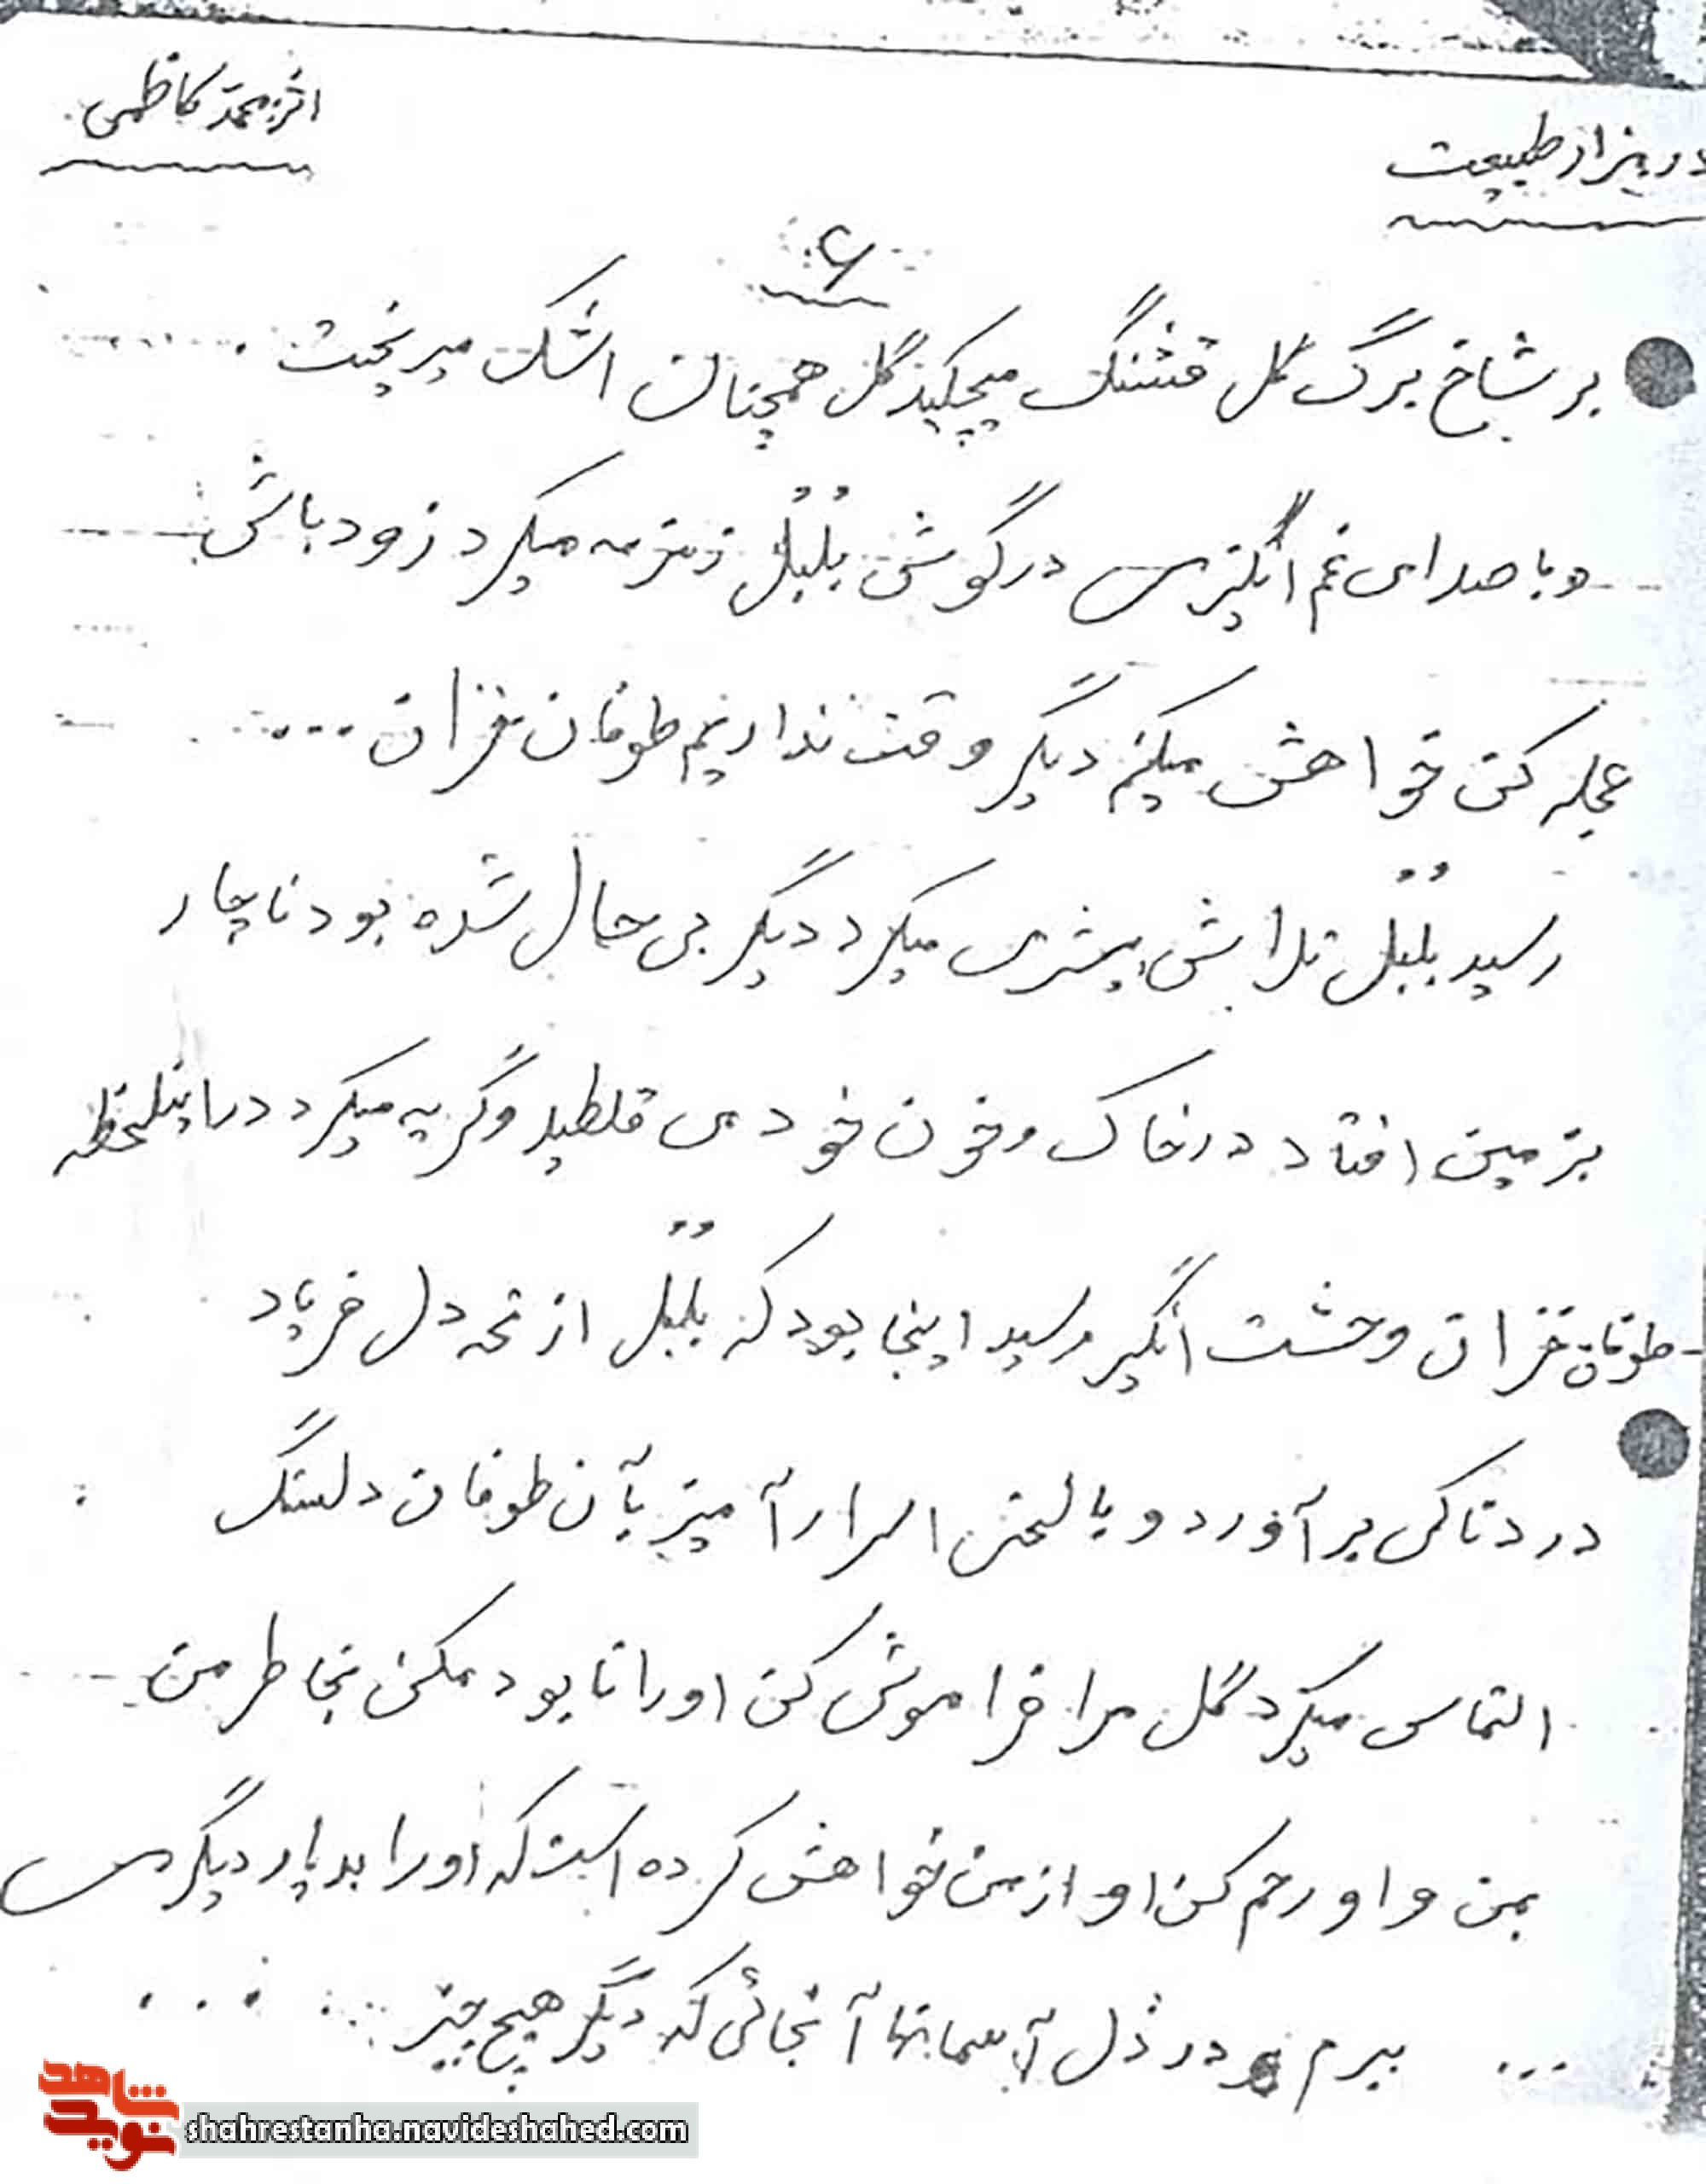 در نیزار طبیعت
اثر: محمد کاظمی
۶
بر شاخ برگ گل قشنگ میچکید گل همچنان اشک میریخت.
و با صدای غم انگیزی در گوش بُلبُل زمزمه میکرد زود باش
عجله کن خواهش میکنم دیگر وقت نداریم طوفان خزان ...
رسید بُلبُل تلاش بیشتری میکرد دیگر بی حال شده بود ناچار
بزمین افتاد در خاک و خون خود می قلطید و گریه میکرد در اینلحظه
طوفان خزان وحشت انگیز رسید اینجا بود که بُلبُل از ته دل فریاد
دردناکی بر آورد و با لحن اسرار آمیز بآن طوفان دلسنگ
التماس میکرد گل مرا فراموش کن او را نابود مکن بخاطر من
بمن و او رحم کن او از من خواهش کرده است که او را بدیار دیگری
... ببرم در دل آسمانها آنجائی که دیگر هیچ چیز ....
شاهد
نوید
shahrestanha.navideshahed.com